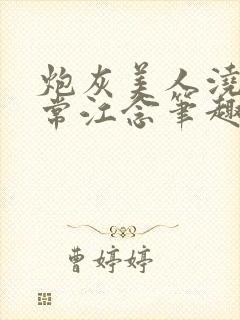 炮灰美人浇
常江念笔趣
曹婷婷